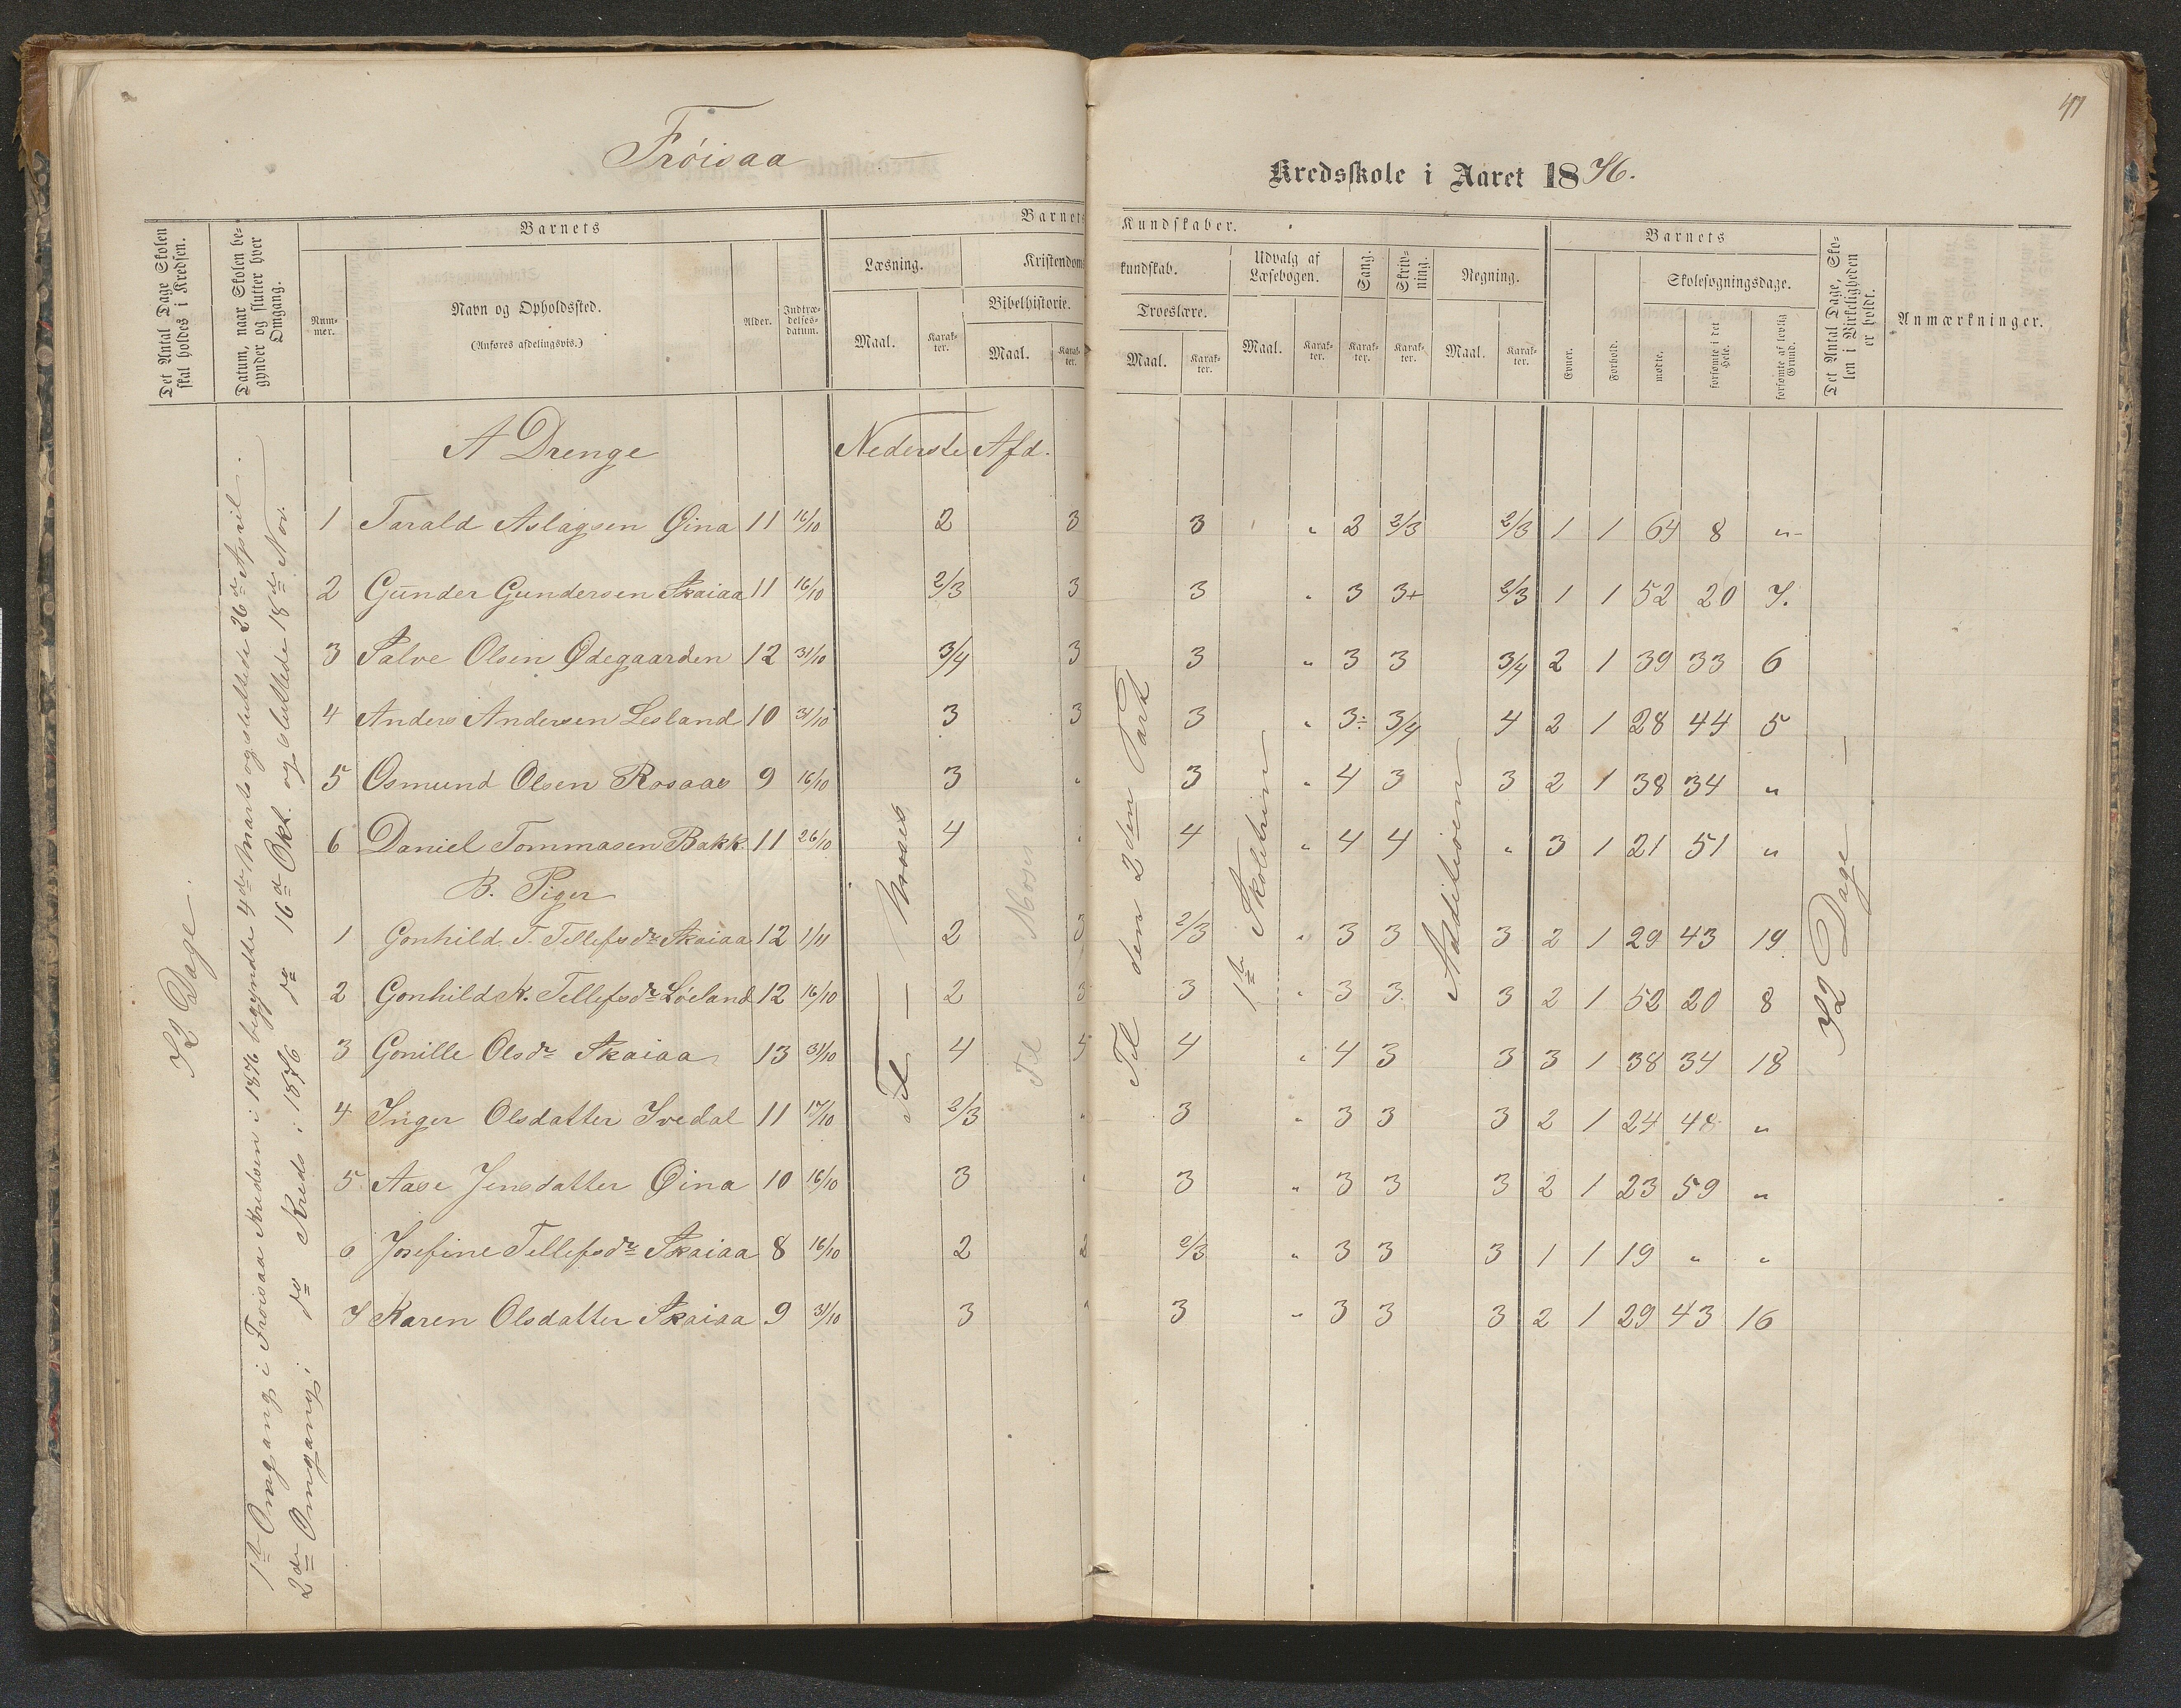 Frøisaa
Kredsskole i Aaret 1876.
47
Det Antal Dage Skolen skal holdes i Kredsen.
Datum, naar Skolen begynder og slutter hver Omgang.
Barnets
Nummer.
Navn og Opholdssted.
(Anføres afdelingsvis.)
Alder.
Indtrædelsesdatum.
Barnets
Læsning.
Maal.
Karakter.
Kristendoms
Bibelhistorie.
Maal.
Karakter.
Kundskaber.
kundskab.
Troeslære.
Maal.
Karakter.
Udvalg af Læsebogen.
Maal.
Karakter.
Sang.
Karakter.
Skrivning.
Karakter.
Regning.
Maal.
Karakter.
Barnets
Evner.
Forhold.
Skolesøgningsdage.
mødte.
forsømte i det Hele.
forsømte af lovlig Grund.
Det Antal Dage, Skolen i Virkeligheden er holdt.
Anmærkninger.
72 Dage.
1ste Omgang i Frøisaa Kredsen i 1876 begyndte 4de Marts og sluttede 26de April.
2den Omgang i do Kreds i 1876 do 16de Okt. og sluttede 18de Nov.
A Drenge Nederste Afd.
1 Tarald Aslagsen Øina 11 16/10 2 3 3 " 2 2/3 2/3 1 1 64 8 "
2 Gunder Gundersen Skaiaa 11 16/10 2/3 3 3 " 3 3+ 2/3 1 1 52 20 7.
3 Salve Olsen Ødegaarden 12 31/10 3/4 3 3 " 3 3 3/4 2 1 39 33 6
4 Anders Andersen Lesland 10 31/10 3 3 3 " 3÷ 3/4 4 2 1 28 44 5
5 Osmund Olsen Rosaas 9 16/10 3 " 3 " 4 3 3 2 1 38 34 "
6 Daniel Tommasen Bakk. 11 26/10 4 " 4 " 4 4 " 3 1 21 51 "
B. Piger
1 Gonhild T. Tellefsdr Skaiaa 12 1/11 2 3 2/3 " 3 3 3 2 1 29 43 19
2 Gonhild K. Tellefsdr Løeland 12 16/10 2 3 3 " 3 3 3 2 1 52 20 8
3 Gonille Olsdr Skaiaa 13 31/10 4 5 4 " 4 3 3 3 1 38 34 18
4 Inger Olsdatter Ivedal 11 17/10 2/3 " 3 " 3 3 3 2 1 24 48 "
5 Aase Jensdatter Øina 10 16/10 3 " 3 " 3 3 3 2 1 23 59 "
6 Josefine Tellefsdr Skaiaa 8 16/10 2 2 2/3 " 3 3 3 1 1 19 " "
7 Karen Olsdatter Skaiaa 9 31/10 3 " 3 " 3 3 3 2 1 29 43 16
Til Moses
Til den 2den Part
1ste Skoletrin
Additionen
72 Dage